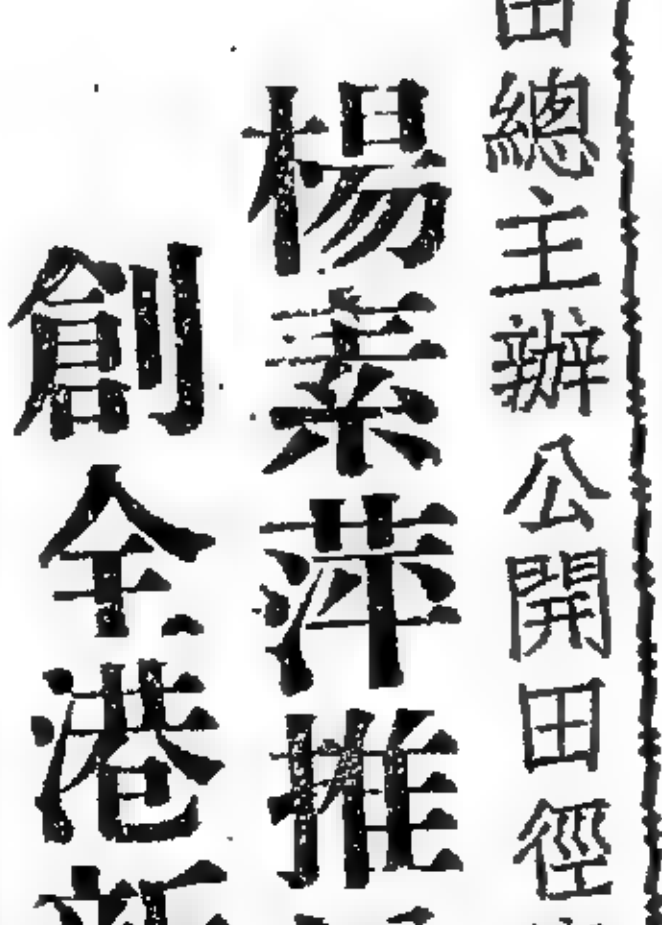 田總主辦公開田徑
楊素萍推
創全港新